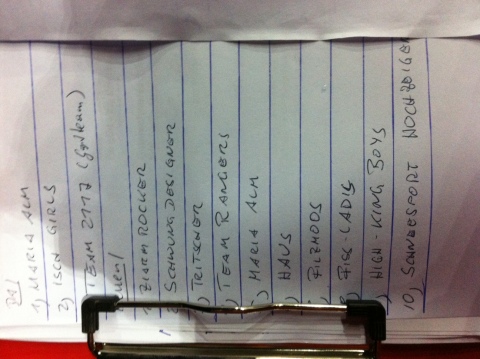 1) MARIA ALM
2) ISCH GIRLS
TEAM 2117
1 ZIARM ROCKER
SCHWUNG DESIGNER
) TRITSCHER
) TEAM RANGERS
) MARIA ALM
) HAUS
) FILZMOOS
8) FISS-LADIS
) HIGH-KING BOYS
10) SCHNEESPORT HOCHZEIGER